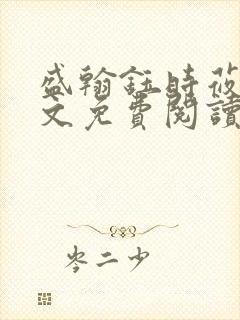 盛翰鈺時莜
文免費閱讀
岑二少